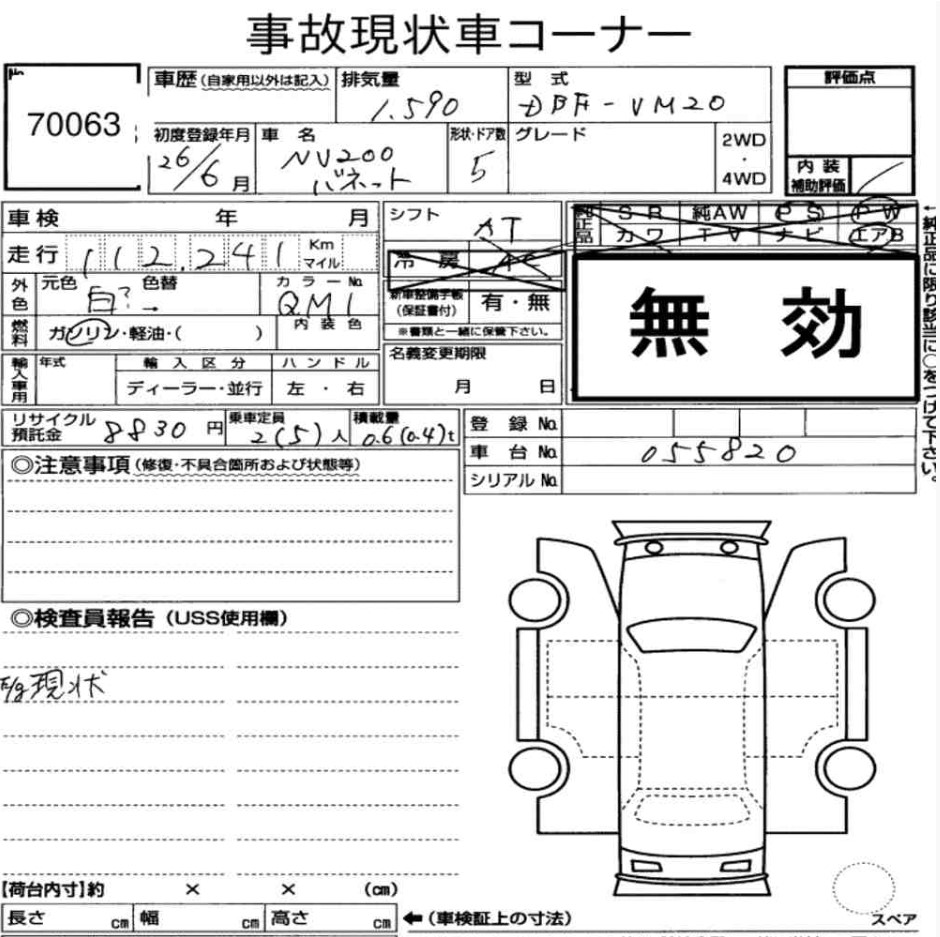 事故現状車コーナー
No. 70063
車歴(自家用以外は記入) 排気量 1.590 型式 DBF-VM20 評価点
初度登録年月 26/6月 車名 NV200 バネット 形状・ドア数 5 グレード 2WD・4WD 内装補助評価
車検 年 月 シフト AT 純正品 SR 純AW PS PW
カワ TV ナビ エアB
走行 112,241 Km マイル 冷房
外色 元色 白? 色替 カラーNo. QM1 新車整備手帳(保証書付) 有・無
無効
←純正品に限り該当に○をつけて下さい。
燃料 ガソリン・軽油・( ) 内装色 ※書類と一緒に保管下さい。
輸入車用 年式 輸入区分 ハンドル 名義変更期限
ディーラー・並行 左・右 月 日
リサイクル預託金 8830円 乗車定員 2(5)人 積載量 0.6(0.4)t 登録No.
車台No. 055820
シリアルNo.
◎注意事項(修復・不具合箇所および状態等)
◎検査員報告(USS使用欄)
E/g現状
【荷台内寸】約 × × (cm)
長さ cm 幅 cm 高さ cm ←(車検証上の寸法) スペア